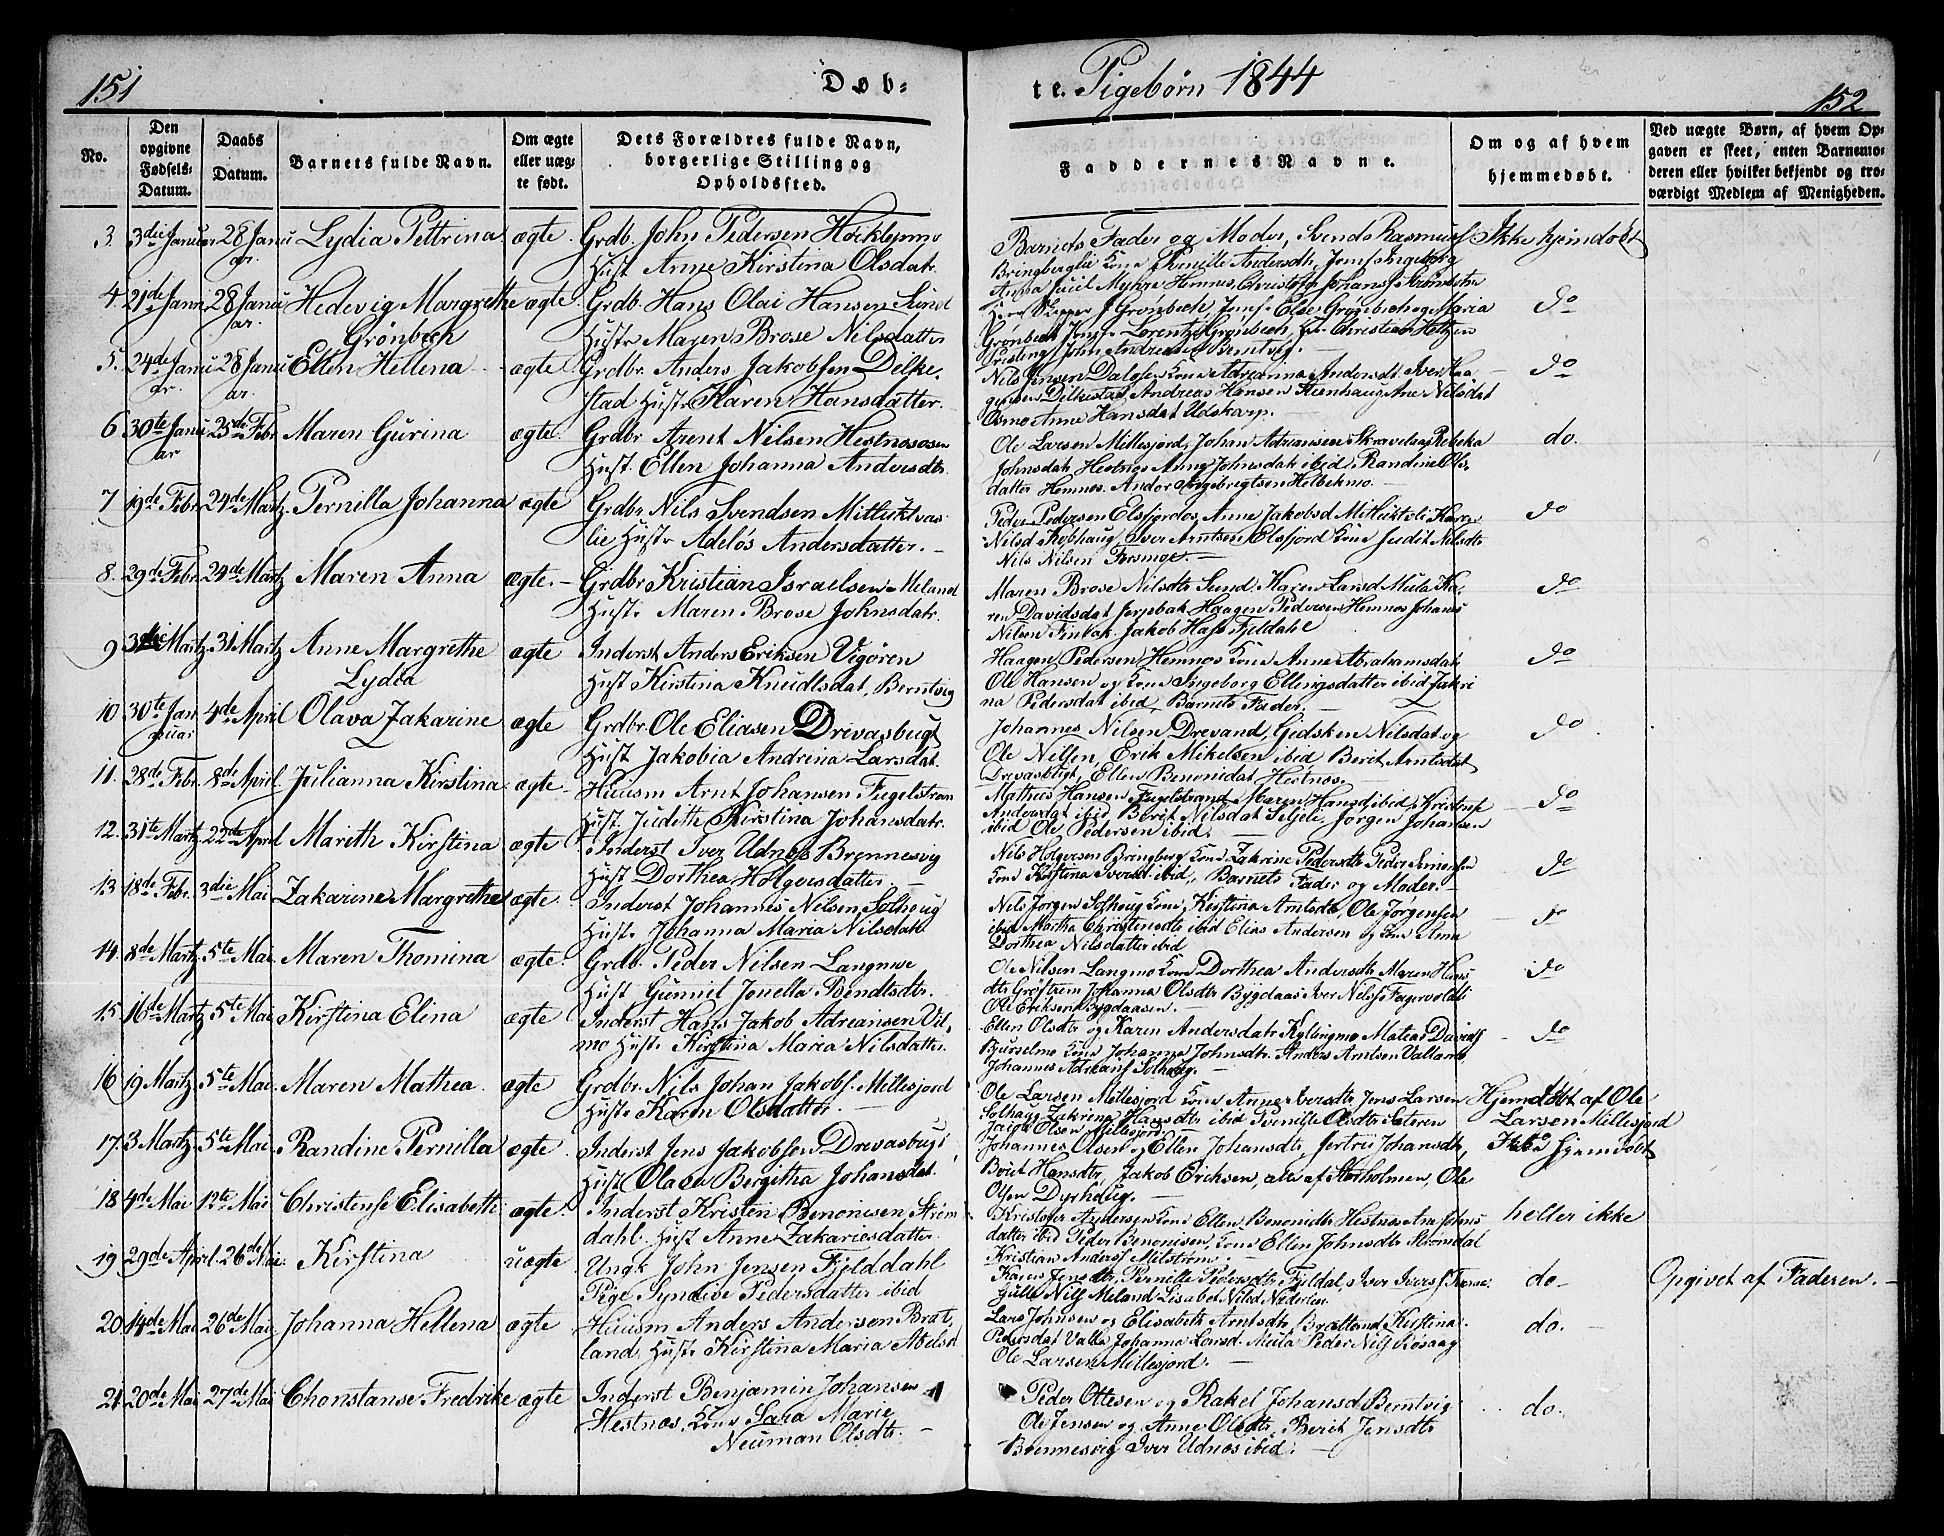 151
Døb=
te. Pigebørn 1844
152
No.
Den opgivne Fødsels= Datum.
Daabs Datum.
Barnets fulde Navn.
Om ægte eller uæg= te født.
Dets Forældres fulde Navn, borgerlige Stilling og Opholdssted.
Faddernes Navne.
Om og af hvem hjemmedøbt.
Ved uægte Børn, af hvem Op= gaven er skeet, enten Barnemo= deren eller hvilket bekjendt og tro= værdigt Medlem af Menigheden.
3. 3die Januar 28 Januar. Lydia Pettrina ægte. Grdb. John Pedersen
Hust Anne Kirstina Olsdatr.
Barnets Fader og Moder, Svend Rasmuss
Pernille Andersdtr,
Ikke hjemdøbt
4. 21de Janu 28 Januar. Hedevig Margrethe Grønbech ægte. Grdb. Hans Olai Hansen Sund
Hustr Maren Brose Nilsdatter
Grønbech, Jomf. Else Grønbech og Maria
Grønbech Jomfr Lorentze Grønbech, Hr. Christian
John Andreas Berntvig.
do
5. 24de Januar. 28 Januar. Ellen Hellena ægte Grdbr. Anders Jakobsen Dilke,
stad Hustr Karen Hansdatter.
Nils Jensen Dalosen Kone Adreanna Andersdt Iver Haa
gensen Dilkestad Andreas Hansen Steenhaug Ane Nilsdat
Osmo Anne Hansdat Udskarp.
do
6 30te Januar 25de Febr Maren Gurina ægte. Grdbr Arent Nilsen Hestnesosen
Hust. Ellen Johanna Andersdtr.
Ole Larsen Millesjord, Johan Adreansen Rebeka
Johnsdatr Hestnes Anne Johnsdatr ibid Randine Ols,
datter Hemnes. Andor Ingebrigtsen Helbekmo.
do.
7 19de Febr. 24de Martz. Pernilla Johanna ægte Grdbr Nils Svendsen
lie Hustr Adelös Andersdatter.
Peder Pedersen Elsfjordos, Anne Jakobsd Karen
Nilsd Kobhaug, Iver Arntsen Elsfjord Kone Judit Nilsdtr
Nils Nilsen Forsmoe.
do
8. 29de Febr. 24de Martz Maren Anna ægte. Grdbr Kristian Israelsen Meland
Hustr. Maren Brose Johnsdatr.
Maren Brose Nilsdtr Sund, Karen Larsd Meula Ka,
ren Davidsdat Jerpbak Haagen Pedersen Hemnes Johanes
Nilsen Finbak, Jakob Hass Fjeldahl
do
9 3die Martz 31 Martz Anne Margrethe Lydia ægte Inderst Anders Eriksen Vigören
Hust Kirstina Kneudlsdat, Berntvig
Haagen Pedersen Hemnes Kone Anne Abrahamsdatr
Ole Hansen og Kone Ingeborg Ellingsdatter ibid Jakri
na Pedersdat ibid, Barnets Fader.
do
10 30te Januar 4de April Olava Jakarine ægte Grdbr. Ole Eliasen Drevasbugt
Hust Jakobia Andrina Larsdat.
Johannes Nilsen Drevand, Gidsken Nilsdat og
Ole Nilsen, Erik Mikelsen ibid, Berit Arntsdat
Drevasbugt, Ellen Benonidat, Hestnes.
do
11. 28de Febr. 8de April. Julianna Kirstina ægte Huusm Arnt Johansen Fugelstran
Hust. Judithe Kirstina Johansdatr.
Mathias Hansen Fugelstrand, Maren Hansd ibid, Kristense
ibid Berit Nilsdat Seljele, Jörgen Johansen
ibid Ole Pedersen ibid.
do
12. 31te Martz 22de April Mareth Kirstina ægte Inderst Iver Udnes Brennesvig
Hust Dorthea Holgersdatter
Nils Holgersen Bringberg Kone Zakrine Pedersdtr Peder
Kone Kirstina Iversd ibid, Barnets Fader og Moder.
do
13 18de Febr. 3die Mai Zakarine Margrethe ægte. Inderst Johannes Nilsen, Solhoug
Hustr Johanna Maria Nilsdatr
Nils Jörgen Solhoug Kone Kirstina Arntsdtr, Ole Jörgensen
ibid Martha Christensdtr ibid Elias Andersen og Kone Anna
Dorthea Nilsdatter ibid
do
14. 8de Martz. 5te Mai. Maren Thomina ægte. Grdb. Peder Nilsen Langmoe
Hust Gunnil Jonella Bendtsdtr.
Ole Nilsen Langmo Kone Dorthea Andersdtr Maren Hans
dtr Johanna Olsdtr Bygdaas Iver Nilss
Ole Eriksen Bygdaasen.
do
15. 16de Martz 5te Mai. Kirstina Elina ægte Inderst Hans Jakob Adreansen Vil,
mo Hustr Kirstina Maria Nilsdatter.
Ellen Olsdtr og Karen Andersdatr Kylbingmo Matias Davids
Kone Johanna Johnsdtr. Anders Arntsen Valland
Johannes Adreans Solhoug.
do
16 19 Martz. 5te Mai. Maren Mathea. ægte Grdbr. Nils Johan Jakobs. Millesjord
Hustr Karen Olsdatter.
Ole Larsen Millesjord Kone Anne Iversdtr Jens Larsen
Solhaug Zakrina Hansdtr ibid Pernille Olsdtr Sæteren
Olsen Millesjord.
Hjemdøbt af Ole
Larsen Millesjord
17. 3 Martz. 5te Mai. Randine Pernilla ægte. Inderst Jens Jakobsen Drevasbugt,
Hust Olava Bergitha Johansdat.
Johannes Olsen og Ellen Johansdtr, Jertru Johansdtr,
Berit Hansdtr, Jakob Eriksen, alle af Storholmen, Ole
Olsen Dyrhaug.
Ikke Hjemdøbt
18 4de Mai 12te Mai Christense Elisabeth ægte. Inderst Kristen Benonisen Ström
dahl. Hust Anne Zakariesdatter.
Kristofer Andersen Kone Ellen Benonidtr Hestnes Ane Johns
datter ibid Peder Benonisen, Kone Ellen Johnsdtr Strömdal
Kristian Anderss Milström.
heller ikke
19 29de April. 26de Mai. Kirstina uægte Ungk John Jensen Fjelddahl
Pige Syndeve Pedersdatter ibid
Karen Jensdtr, Pernille Pedersdtr Fjeldal, Iver Iverss
Nilss Meland Lisabet Nilsd Nederlen.
do.
Opgivet af Faderen.
20 14de Mai 26de Mai Johanna Hellena ægte Huusm Anders Andersen Brat,
land, Hustr Kirstina Maria Abelsd
Lars Johnsen og Elisabeth Arntsdtr, Bratland Kirstina
Pedersdat Valla Johanna Larsd. Meula Peder Nilss Rösaag
Ole Larsen Millesjord.
do.
21 20de Mai 27de Mai Chonstanse Fredrike ægte Inderst Benjamin Johansen
Hestnes, Kone Sara Marie
Neuman Olsdtr.
Peder Ottesen og Rakel Johansd Berntvig
Ole Jensen og Anne Olsdtr, Berit Jensdtr
Brennesvig Iver Udnes ibid.
do.